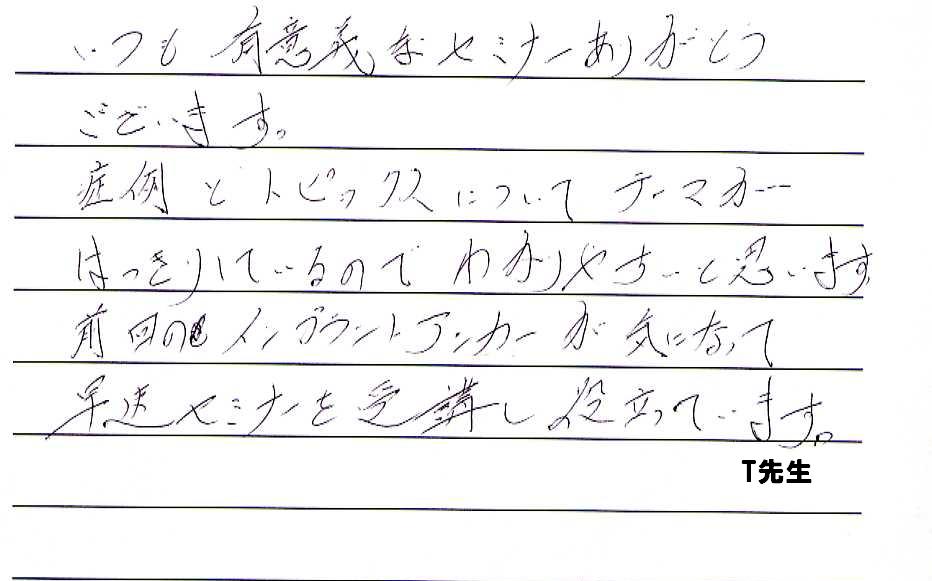 いつも有意義なセミナーありがとう
ございます。
症例とトピックスについてテーマが
はっきりしているのでわかりやすいと思います
前回のインプラントアンカーが気になって
早速セミナーを受講し役立っています。
T先生